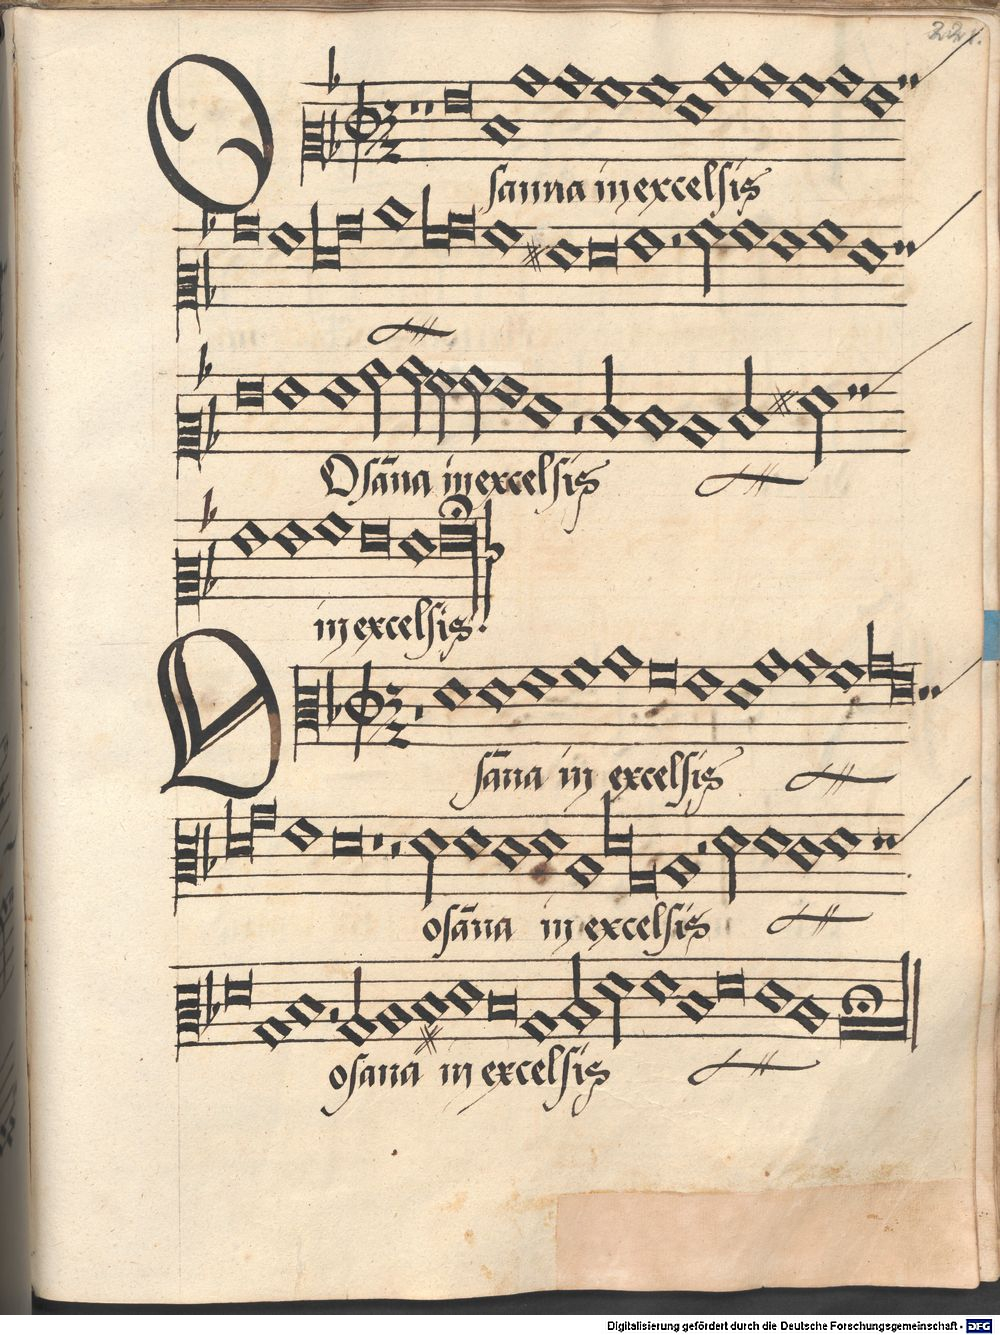 221.
O
sanna in excelsis
Osāna in excelsis
in excelsis.
O
sāna in excelsis
osāna in excelsis
osana in excelsis
Digitalisierung gefördert durch die Deutsche Forschungsgemeinschaft - DFG